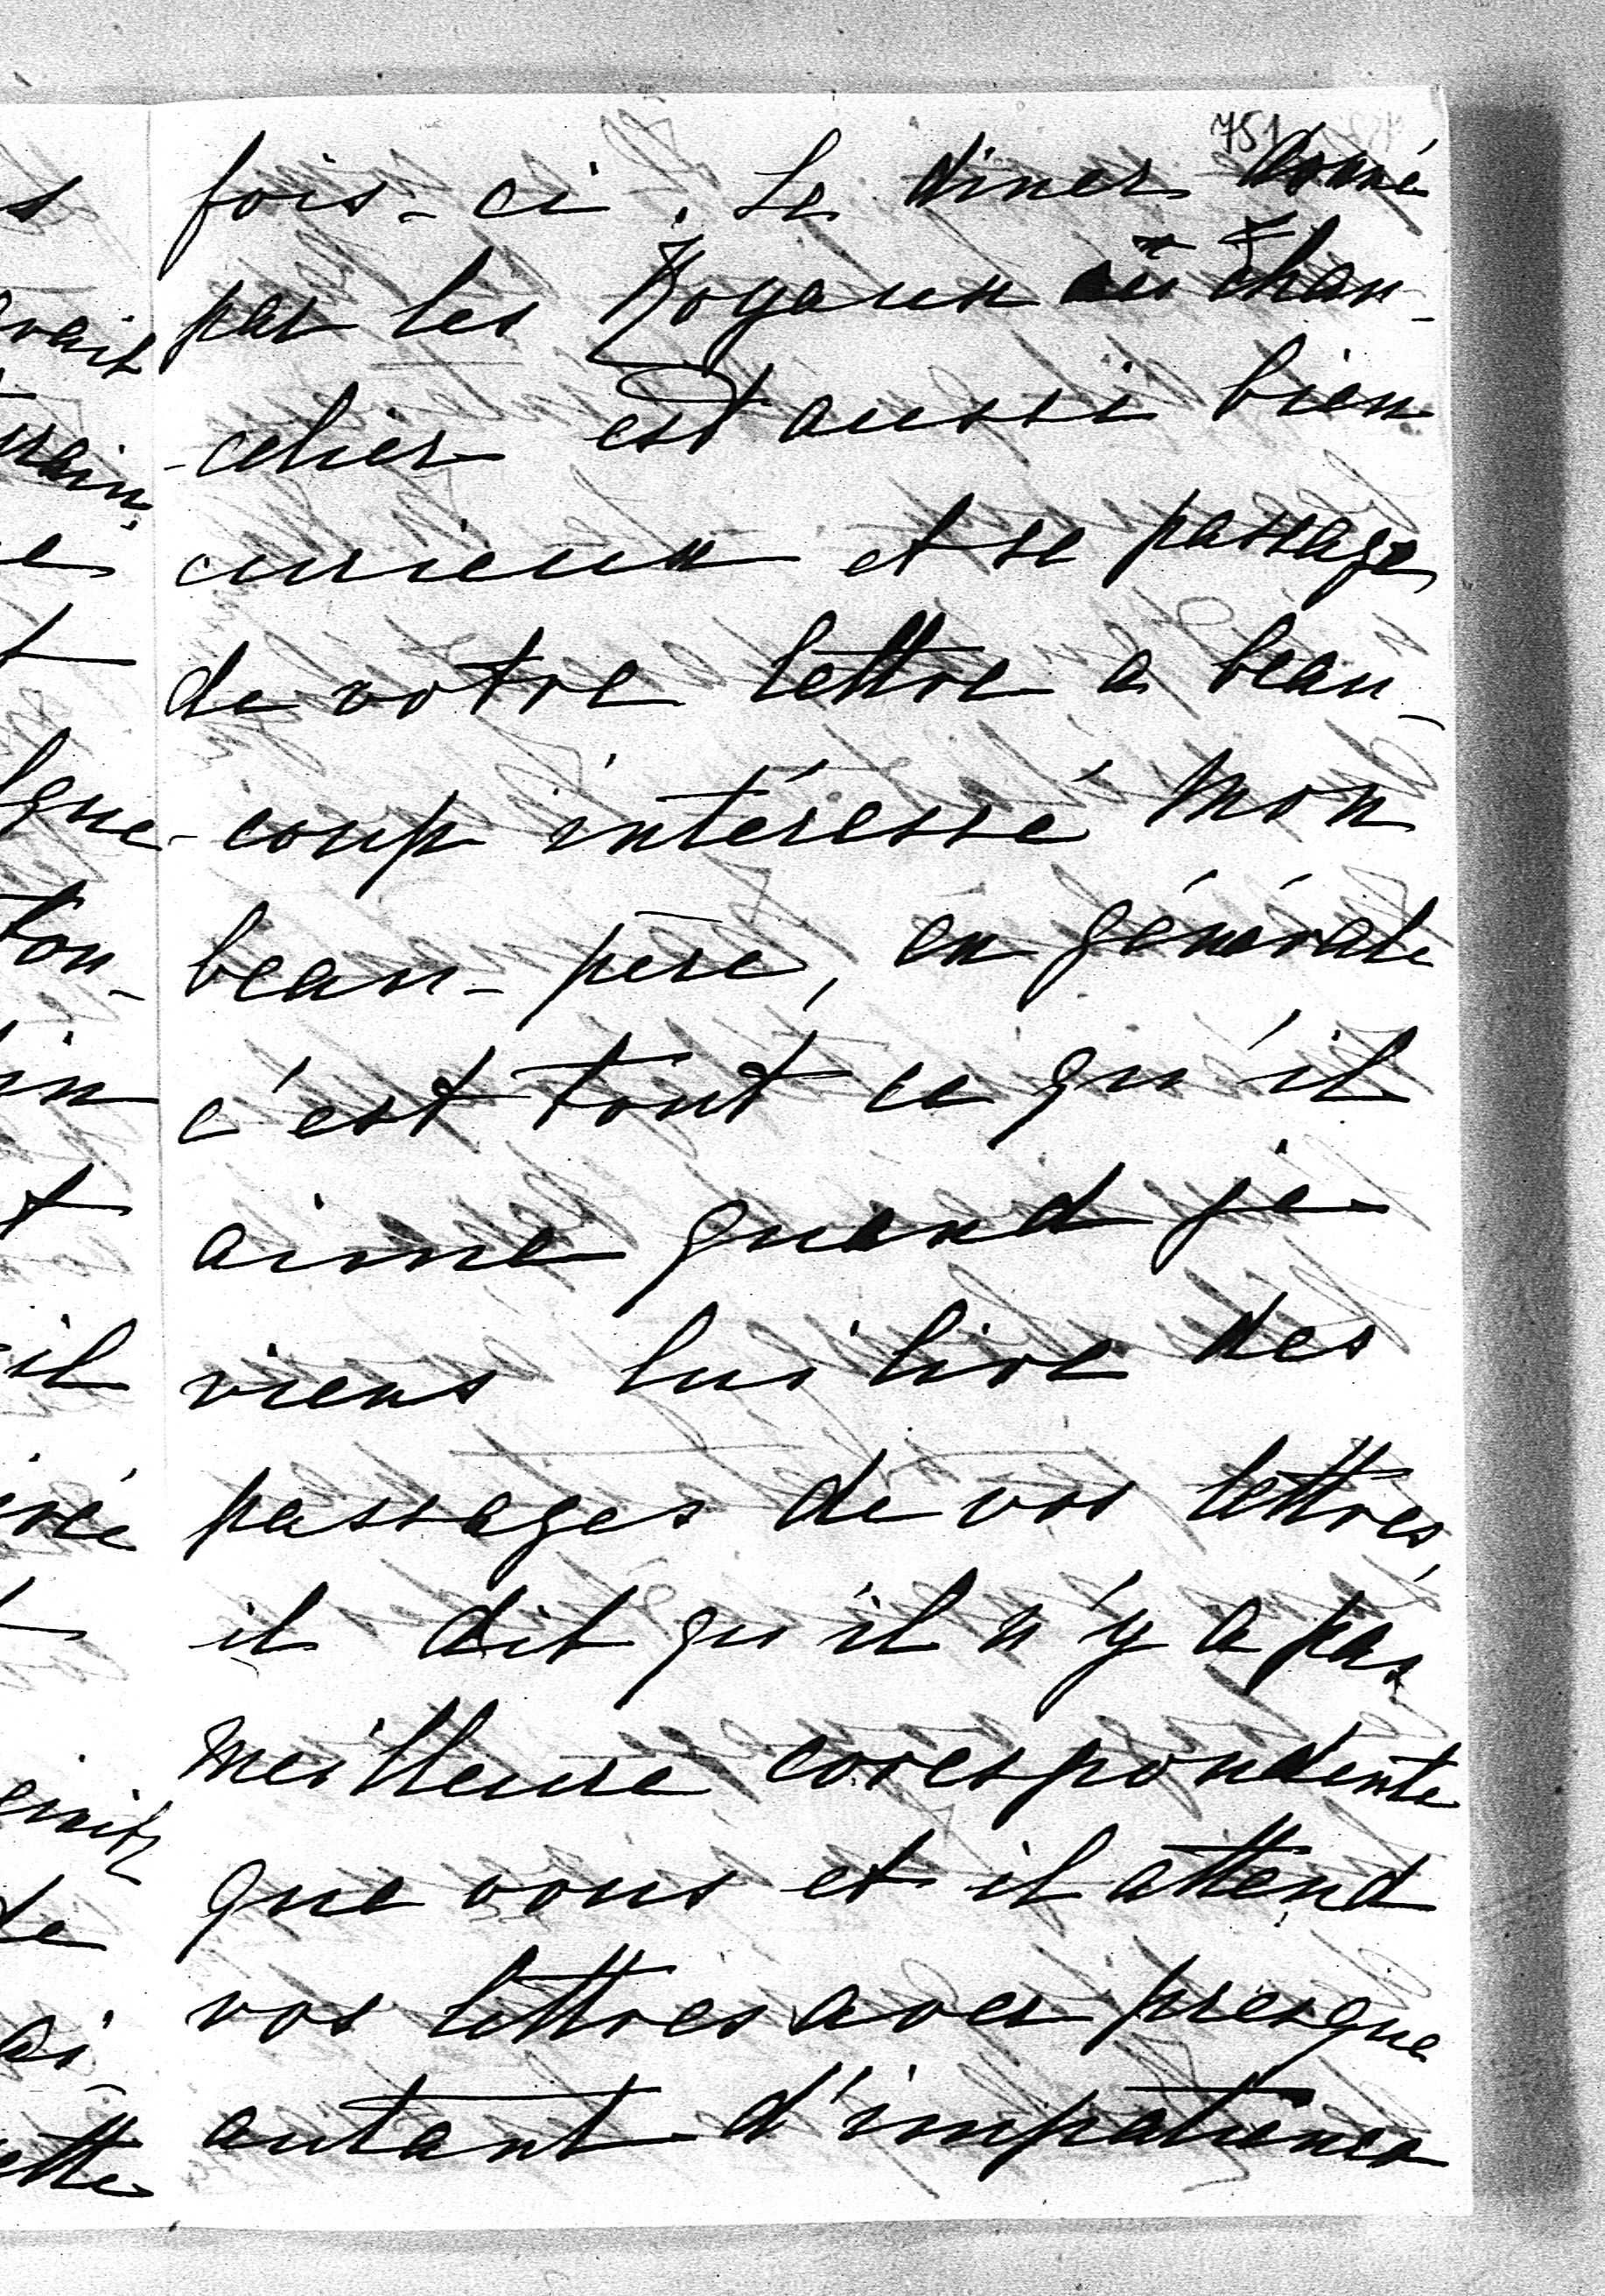 751
fois-ci. Le diner donné
par les Royaux au Chan-
-celier est aussi bien
curieux et se passage
de votre lettre a beau-
-coup intéressé mon
beau-père, en générale
c'est tout ce qu'il
aime quand je
viens lui lire des
passages de vos lettres,
il dit qu'il n'y a pas
meilleure corespondente
que vous et il attend
vos lettres avec presque
autant d'impatience